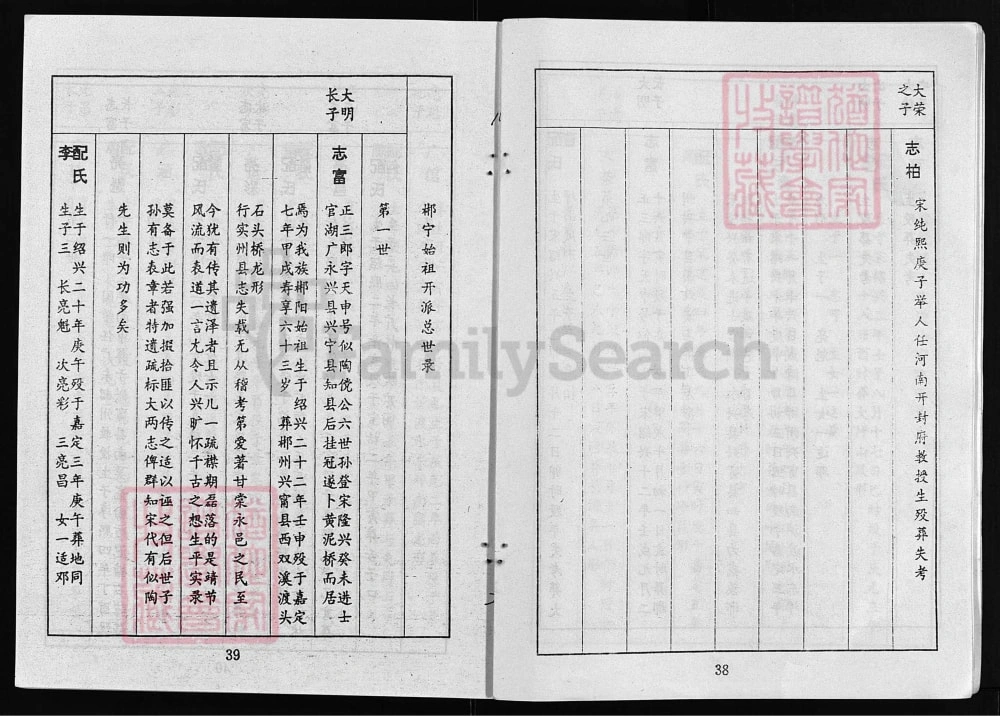 大荣
之子
志柏
宋纯熙庚子举人任河南开封府教授生殁葬失考
38
郴宁始祖开派总世录
第一世
大明
长子
志富
正三郎字天申号似陶傥公六世孙登宋隆兴癸未进士
官湖广永兴县兴宁县知县后挂冠遂卜黄泥桥而居
焉为我族郴阳始祖生于绍兴二十二年壬申殁于嘉定
七年甲戌寿享六十三岁 葬郴州兴甯县西双溪渡头
石头桥龙形
行实州县志失载无从稽考第爱著甘棠永邑之民至
今犹有传其遗泽者且示儿一疏襟期磊落的是靖节
风流而表道一言尤令人兴旷怀千古之想生平实录
莫备于此若强加掇拾匪以传之适以诬之但后世子
孙有志表章者特遗疏标大两志俾群知宋代有似陶
先生则为功多矣
配氏
李
生于绍兴二十年庚午殁于嘉定三年庚午葬地同
生子三 长亮魁 次亮彩 三亮昌 女一适邓
39
FamilySearch